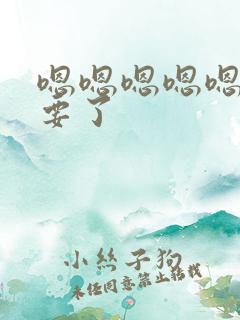 嗯嗯嗯嗯嗯
要了
小丝子狗
未经同意禁止转载